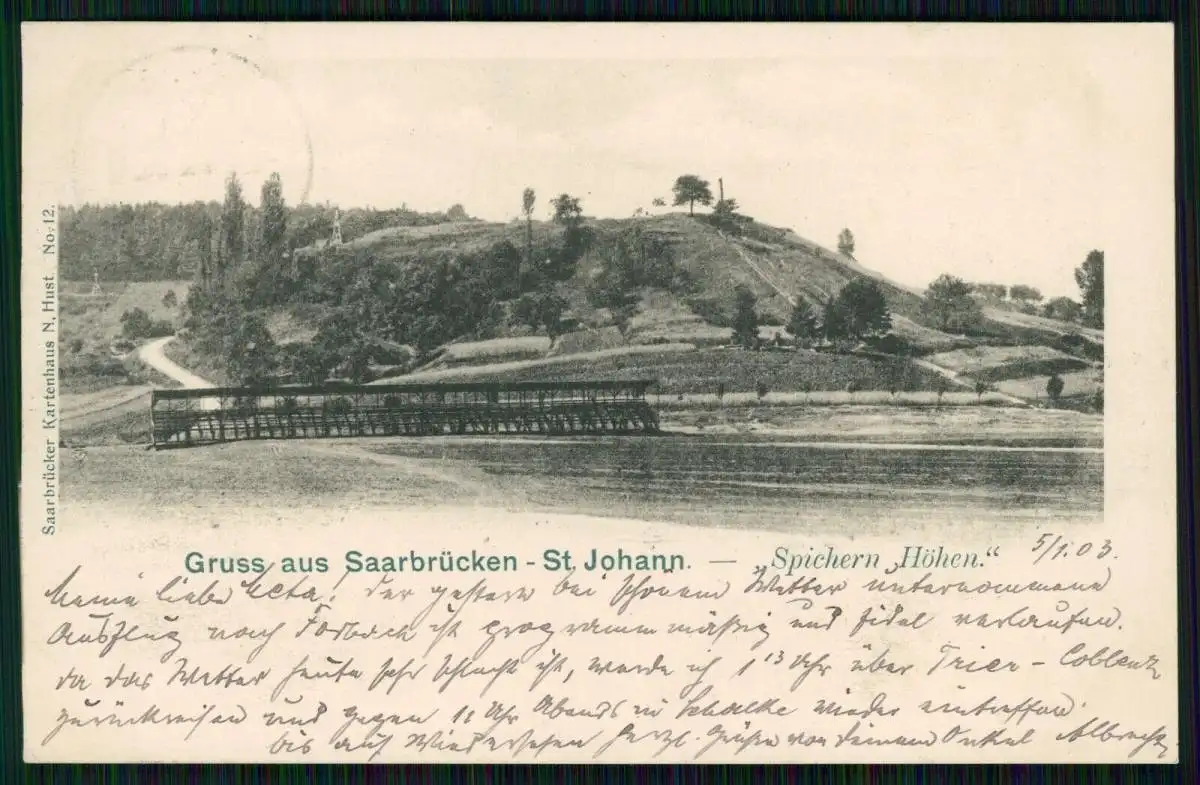 Saarbrücker Kartenhaus N. Hust. No. 12.
Gruss aus Saarbrücken - St. Johann. — Spichern „Höhen.“
5/1.03.
Meine liebe Meta! Der gestern bei schönem Wetter unternommene
Ausflug nach Forbach ist programmmäßig und fidel verlaufen.
Da das Wetter heute sehr schlecht ist, werde ich 1 13 Uhr über Trier - Coblenz
zurückreisen und gegen 11 Uhr Abends in Schalke wieder eintreffen.
Bis auf Wiedersehen herzl. Grüße von deinem Onkel Albrecht.